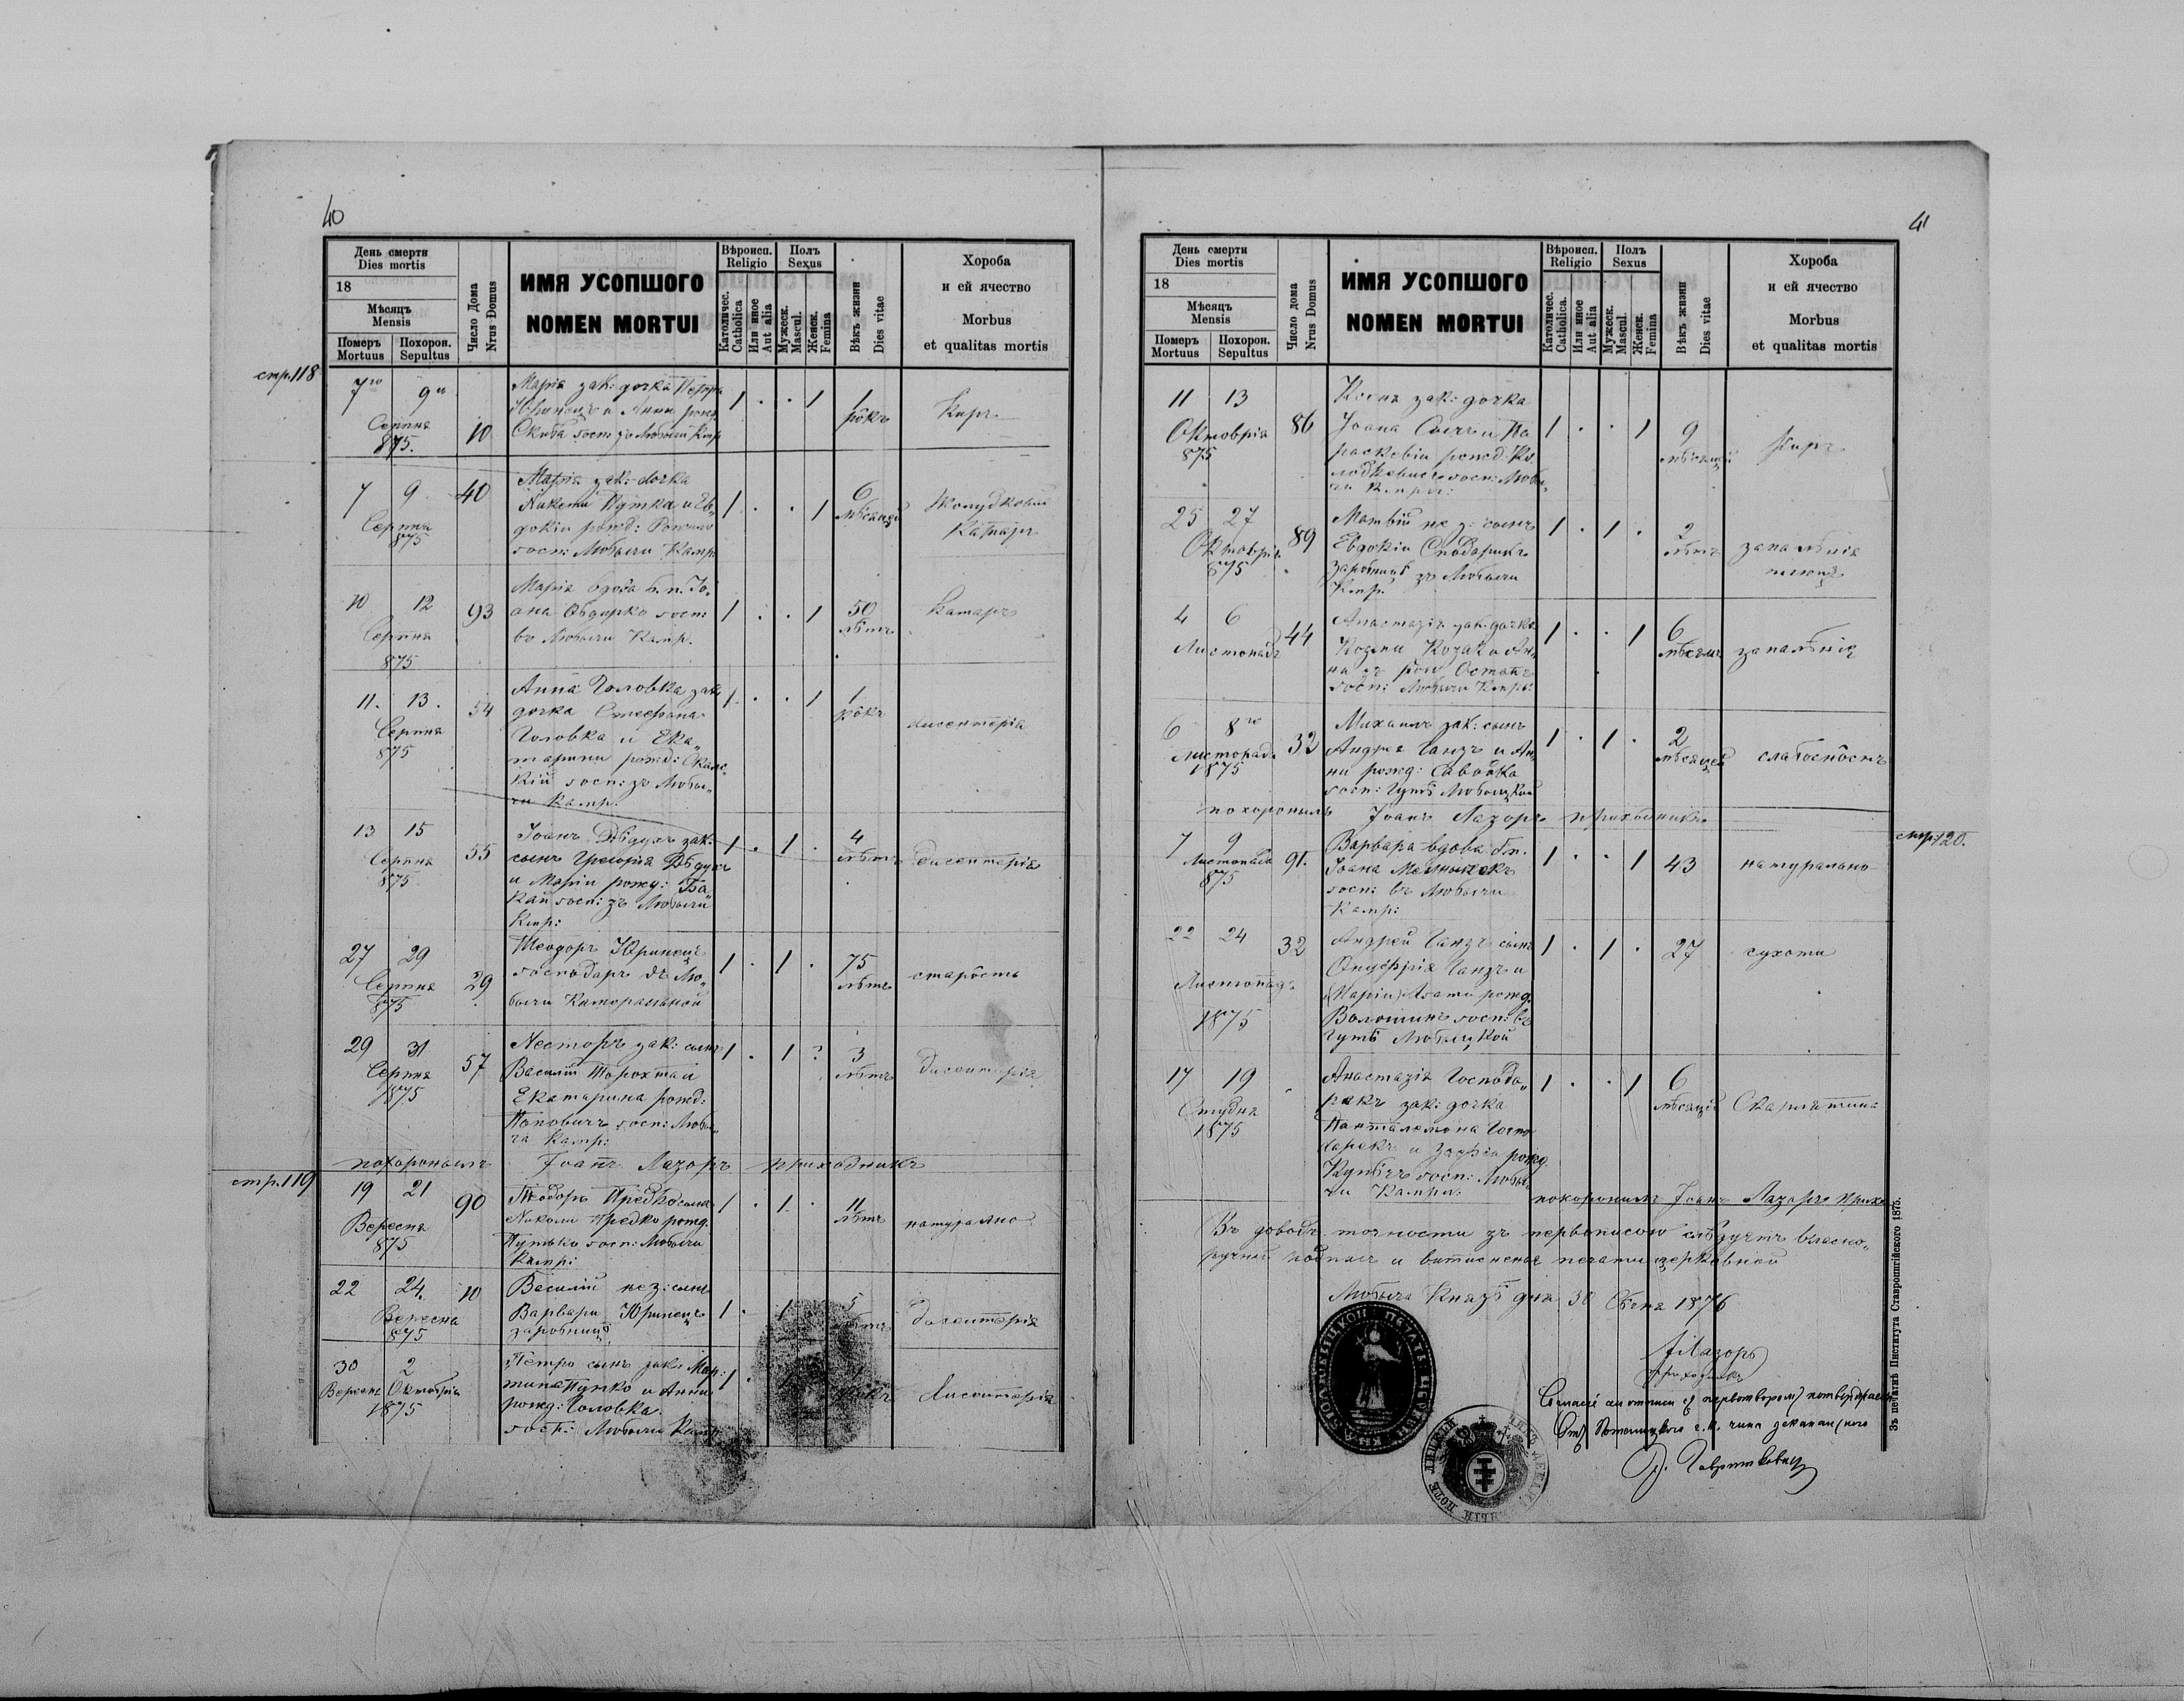 40
День смерти
Dies mortis
18
Мѣсяцъ
Mensis
Померъ
Mortuus
Похорон.
Sepultus
Число Дома
Nrus Domus
ИМЯ УСОПШОГО
NOMEN MORTUI
Вѣроисп.
Religio
Католичес.
Catholica
Или иное
Aut alia
Полъ
Sexus
Мужеск.
Mascul.
Женск.
Femina
Вѣкъ жизни
Dies vitae
Хороба
и ей ячество
Morbus
et qualitas mortis
стр.118
7го 9го
Серпня
875.
10
Марія зак: дочка Петра
и Анни рожд
Скиба госп: зъ Любычи Кмр
1 . . 1
1
рôкъ
Киръ
7 9 40
Серпня
875
Марія зак: дочка
Никети Путка и Ев„
докіи рожд:
госп: Любычи Камр
1 . . 1
6
мѣсяцей
Жолудковый
Катаръ
10 12 93
Серпня
875
Марія вдова б. п. Іо„
ана госп:
въ Любычи Камр.
1 . . 1
50
лѣтъ
Катаръ
11. 13. 54
Серпня
875
Анна Головка зак
дочка Стефана
Головка и Ека„
тарини рожд:
госп: зъ Любы„
чи Камр.
1 . . 1
1
рôкъ
дисентерія
13 15 55
Серпня
875
Іоанъ Дѣдухъ зак:
сынъ Григорія Дѣдухъ
и Маріи рожд: Ба„
кай госп: зъ Любычи
Кмр:
1 . 1 .
4
лѣтъ
дисентерія
27 29 29
Серпня
875
Теодоръ Юринецъ
господаръ зъ Лю„
бычи Камеральной
1 . 1 .
75
лѣтъ
старôсть
29 31 57
Серпня
1875
Несторъ зак: сынъ
Василій Торохтай
Екатарина рожд:
Поповичъ госп: Любы„
ча Камр:
1 . 1 ?
3
лѣтъ
дисентерія
похоронилъ Іоанъ Лазоръ приходникъ
стр.119
19 21 90
Вересня
875
Теодоръ Предко сынъ
Николи Предко рожд.
Путько госп: Любычи
Камр:
1 . 1 .
11
лѣтъ
натурально
22 24. 10
Вересня
875
Василій нез: сынъ
Варвари Юринецъ
заробниця
1 . 1
5
лѣтъ
дисентерія
30 2
Вересня Октобрія
1875
Петро сынъ зак: Мар„
тина Пупко и Анни
рожд: Головка
госп: Любычи Камр
1 .
рôкъ
дисентерія
41
День смерти
Dies mortis
18
Мѣсяцъ
Mensis
Померъ
Mortuus
Похорон.
Sepultus
Число дома
Nrus Domus
ИМЯ УСОПШОГО
NOMEN MORTUI
Вѣроисп.
Religio
Католичес.
Catholica.
Или иное
Aut alia
Полъ
Sexus
Мужеск.
Mascul.
Женск.
Femina
Вѣкъ жизни
Dies vitae
Хороба
и ей ячество
Morbus
et qualitas mortis
11 13 86
Октовріа
875
Ксеня зак: дочка
Іоана и Па
раскевіи рожд: Ко„
госп: Любы„
чи Кмрл:
1 . . 1
9
мѣсяцей
Киръ
25 27 89
Октоврія
875
Матвій нез: сынъ
Евдокіи Сподарикъ
заробниця зъ Любычи
Кмр.
1 . 1 .
2
лѣтъ
запалѣнія
4 6 44
Листопадъ
Анастазія зак: дочка
Козьми Козак и Ан„
ни зъ рôд Остапъ
госп: Любычи Кмрл:
1 . . 1
6
мѣсяцъ
запалѣнія
6 8го 32
Листопадъ
1875
Михаилъ зак: сынъ
Андрея Ганзъ и Ан„
ни рожд: Савôйка
госп: Гутѣ Любыцкой
1 . 1 .
2
мѣсяцей
слабосность
похоронилъ Іоанъ Лазоръ приходникъ
стр:120.
7 9 91.
Листопада
875
Варвара вдова б.п.
Іоана Мельничокъ
госп: въ Любычи
Камр:
1 . . 1
43
натурально
22 24 32
Листопадъ
1875
Андрей Ганзъ сынъ
Онуфрія Ганзъ и
(Маріи) Агати рожд.
Волошинъ госп: въ
Гутѣ Любыцкой
1 . 1 .
27
сухоти
17 19
Студня
1875
Анастазія Господа„
рикъ зак: дочка
Панталемона Госпо
дарекъ и Зофіи рожд.
госп: Любы„
чи Камрл:
1 . . 1
6
мѣсяцей
Скарлятина
похоронилъ Іоанъ Лазоръ прихо
Въ доводъ точности зъ первописою слѣдуетъ власно„
ручный подпись и витисненя печати церковной
Любыча Князѣ дня 30 Сѣчня 1876
І Лазоръ
приходникъ
зъ первотворомъ потверджаесъ
Отъ
Зъ печатнѣ Института Ставропигійского 1875.